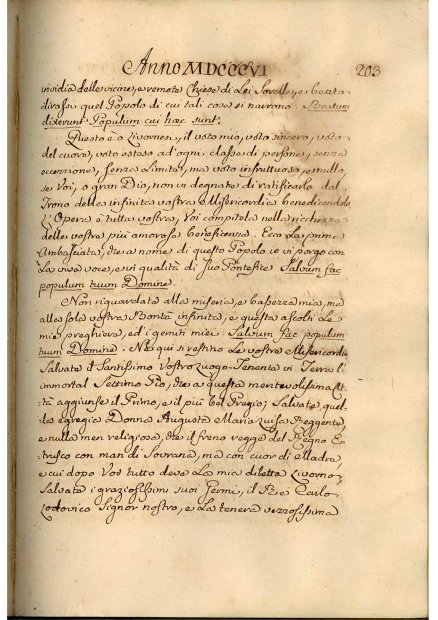 Anno MDCCCVI 203
invidia delle vicine, e remote Chiese di Lei Sorelle, e beato
dirassi quel Popolo di cui tali cose si narrono: Beatum
dixerunt Populum cui haec sunt.
Questo è o Livornesi, il voto mio, voto sincero, voto
del cuore, voto esteso ad ogni classe di persone, senza
eccezzione, senza Limite, ma voto infruttuoso, e nullo,
se Voi, o gran Dio, non vi degnate di ratificarlo dal
Trono della infinita vostra Misericordia benedicendolo
L'Opera è tutta vostra, Voi compitela nella ricchezza
della vostra più amorosa beneficenza. Ecco La prima
Ambasciata, che a nome di questo Popolo io vi porgo con
La viva voce, e in qualità di suo Pontefice Salvum fac
populum tuum Domine.
Non riguardate alla miseria, e bassezza mia, ma
alla sola vostra Bontà infinita, e questa ascolti Le
mie preghiere, ed i gemiti miei: Salvum fac populum
tuum Domine: Nè qui si restino Le vostre Misericordie
Salvate il Santissimo Vostro Luogo-Tenente in Terra l'
immortal Settimo Pio, che a questa meritevolissima Cit
tà aggiunse il Primo, e il più bel Pregio; Salvate quel-
la egregia Donna Augusta Maria Luisa Reggente,
e nulla men religiosa, che il freno regge del Regno E-
trusco con man di Sovrana, ma con cuor di Madre,
e cui dopo Voi tutto deve La mia diletta Livorno;
Salvate i graziosissimi suoi Germi, il Re Carlo
Lodovico Signor nostro, e La tenera vezzosissima